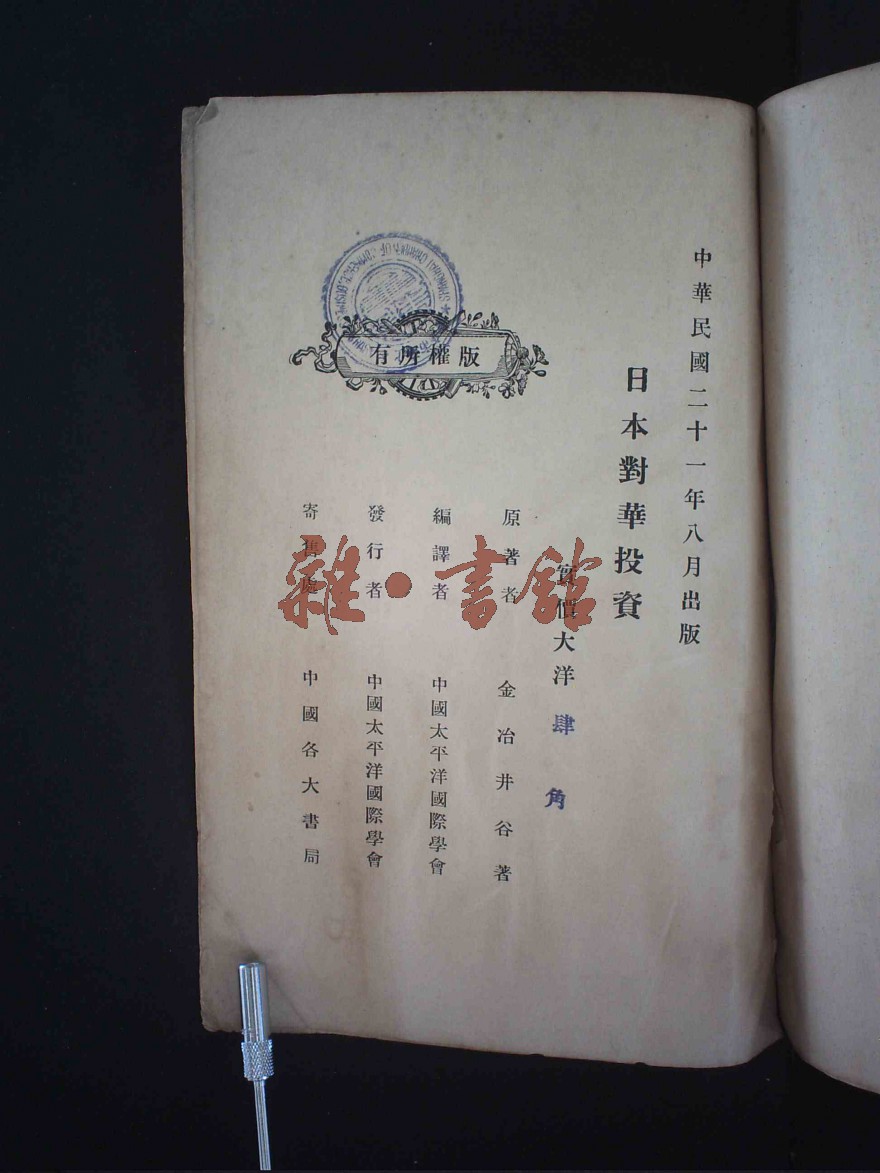 中華民國二十一年八月出版
日本對華投資
實價大洋肆角
原著者 金冶井谷著
編譯者 中國太平洋國際學會
發行者 中國太平洋國際學會
寄售處 中國各大書局
有所權版
雜·書館